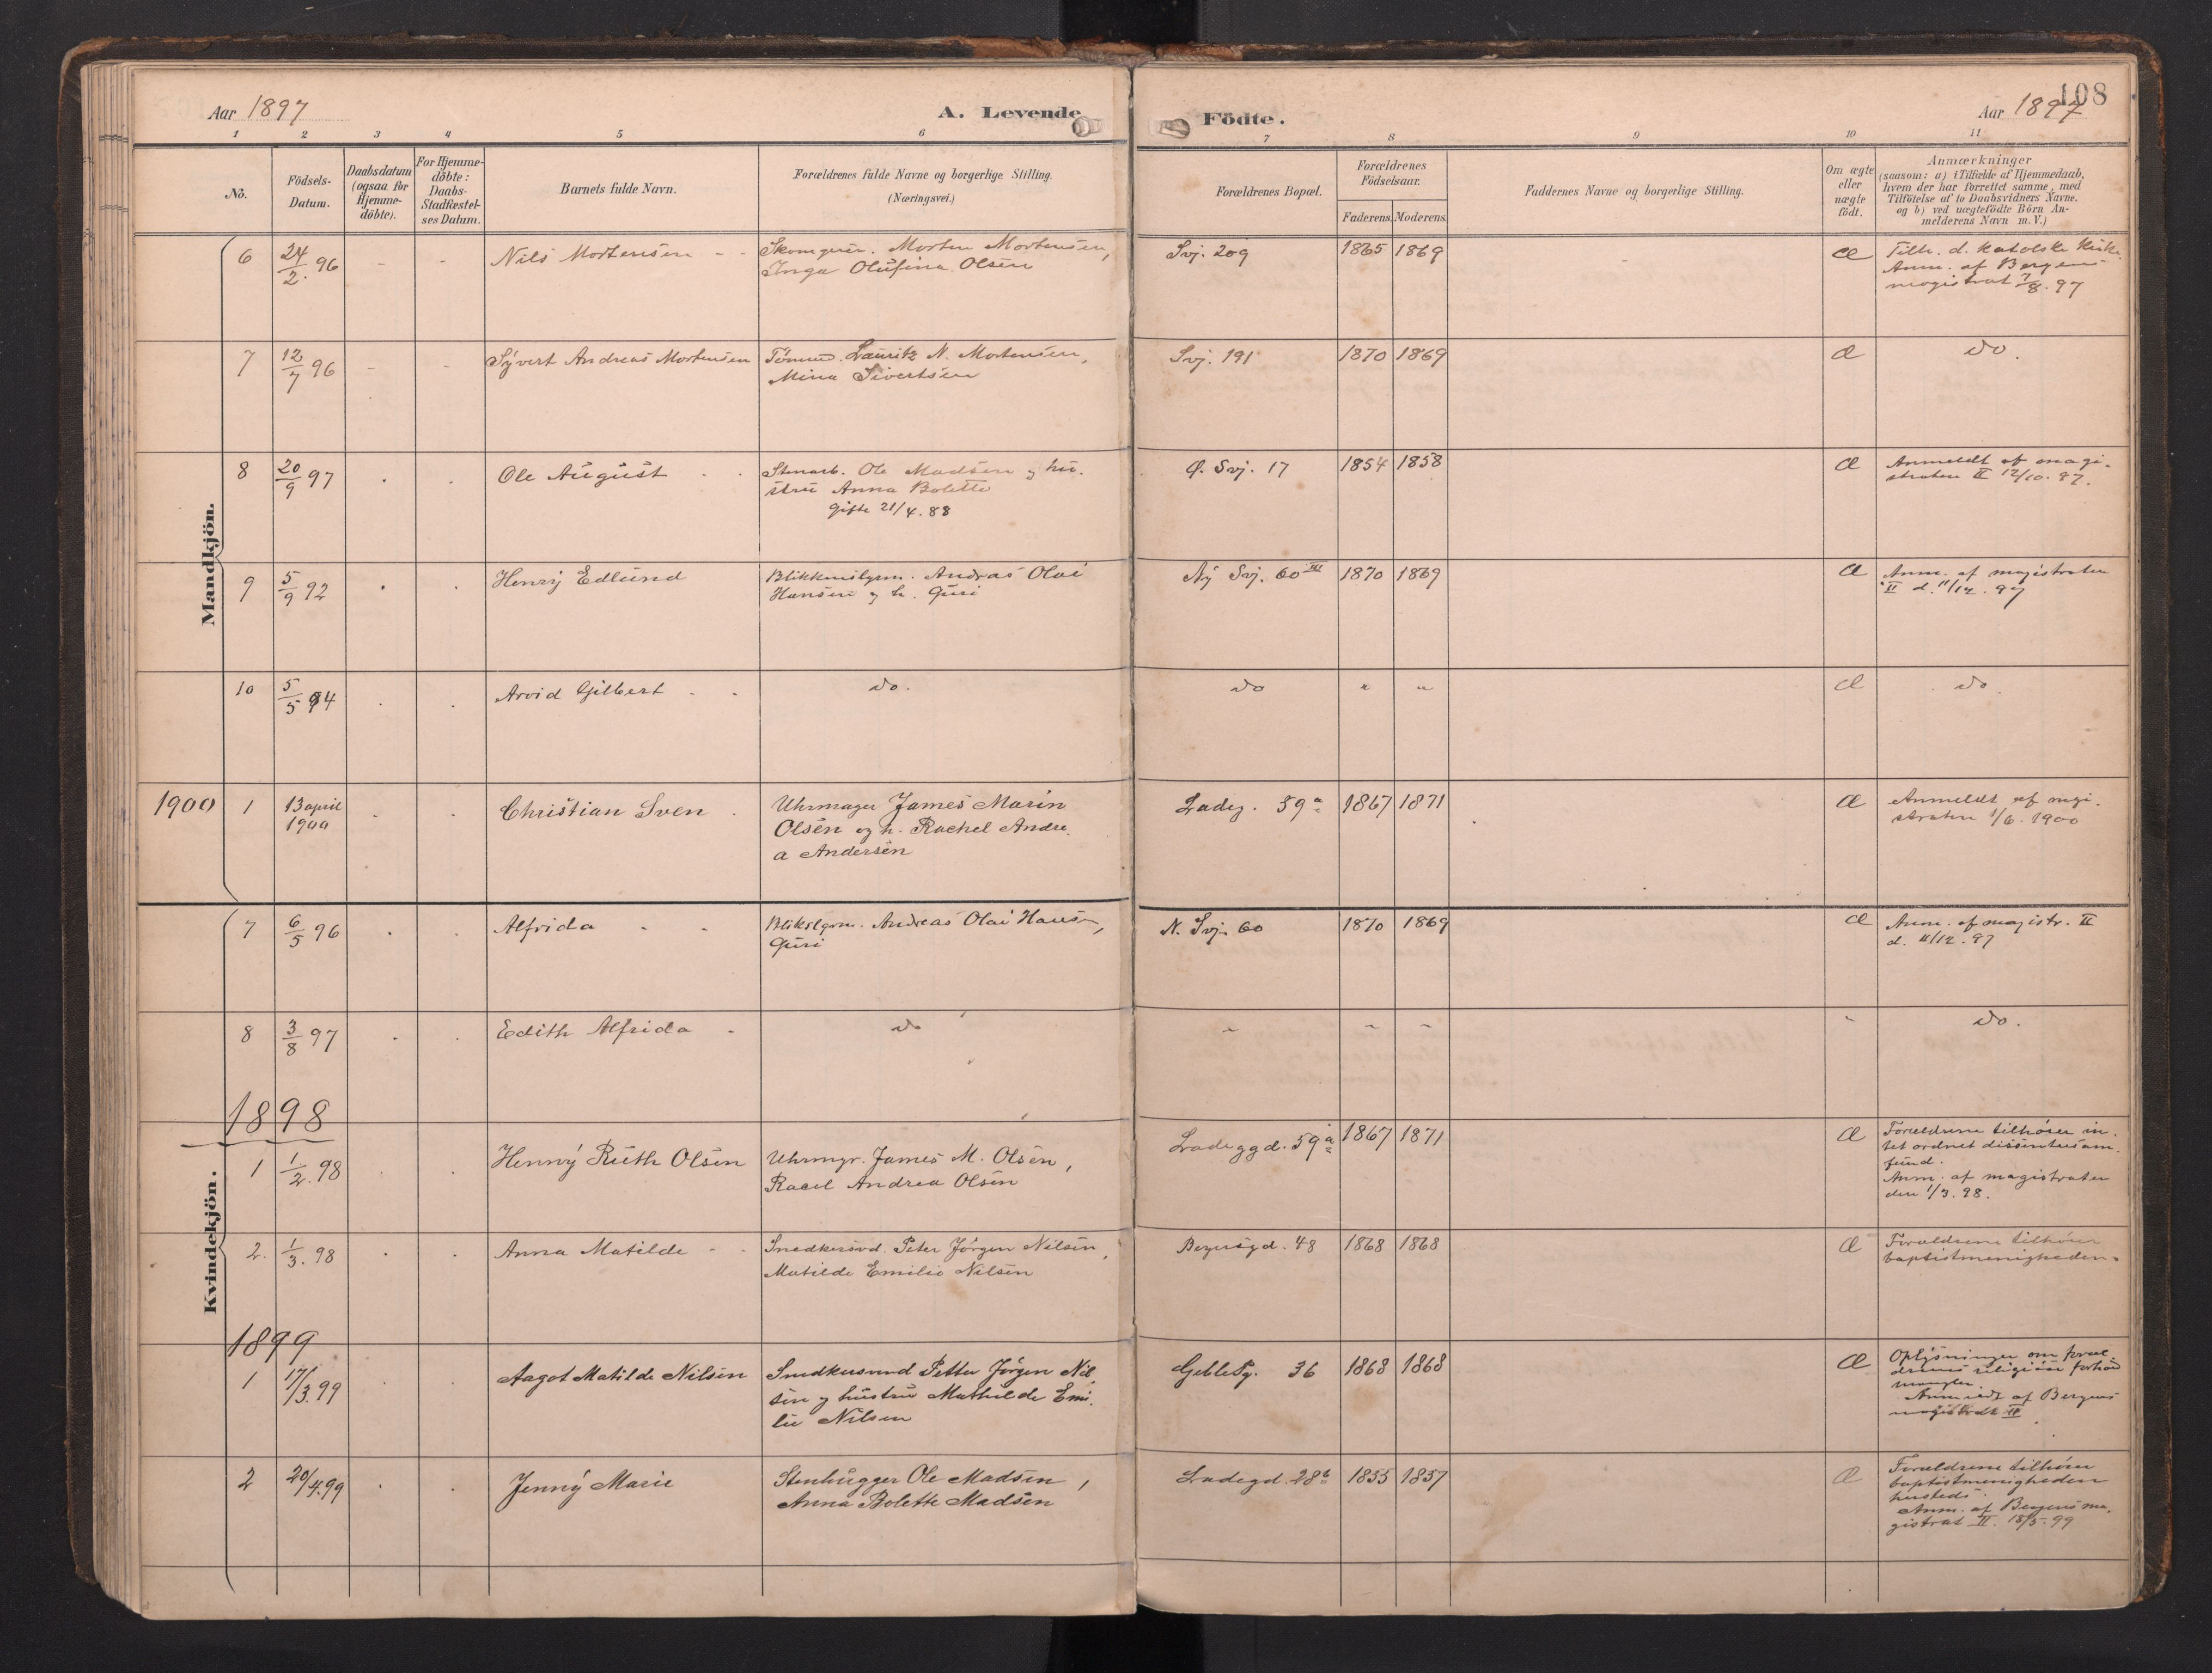 108
Aar 1897
A. Levende
Födte.
Aar 1897
1 2 3 4 5 6 7 8 9 10 11
No.
Födsels-
Datum.
Daabsdatum
(ogsaa for
Hjemme-
döbte).
For Hjemme-
döbte:
Daabs-
Stadfæstel-
ses Datum.
Barnets fulde Navn.
Forældrenes fulde Navne og borgerlige Stilling.
(Næringsvei.)
Forældrenes Bopæl.
Forældrenes
Födselsaar.
Faderens. Moderens.
Faddernes Navne og borgerlige Stilling.
Om ægte
eller
uægte
födt.
Anmærkninger
(saasom: a) i Tilfælde af Hjemmedaab,
hvem der har forrettet samme, med
Tilföielse af to Daabsvidners Navne.
og b) ved uægtefödte Börn An-
melderens Navn m. V.)
Mandkjön.
6 24/2.96 - - Nils Mortensen - - Skomager. Morten Mortensen,
Inga Olufina Olsen
Svj. 209 1865 1869 Æ Tilh. d. katolske Kirke.
Anm. af Bergens
magistrat 7/8.97
7 12/7 96 - - Syvert Andreas Mortensen Tömm. Lauritz N. Mortensen,
Mina Sivertsen
Svj. 191 1870 1869 Æ do.
8 20/9 97 Ole August Stenarb. Ole Madsen og hu-
stru Anna Bolette
gifte 21/4.88
Ø. Svj. 17 1854 1858 Æ Anmeldt af magi-
straten II 12/10.97.
9 5/9 92 Henry Edlund Blikkenslgrm. Andras Olai
Hansen og h. Guri
Ny Svj. 60 III 1870 1869 Æ Anm. af magistraten
II d. 11/12.97
10 5/5 94 Arvid Gilbert - - do. do " " Æ do.
1900 1 13 april
1900
Christian Sven Uhrmager James Marin
Olsen og h. Rachel Andre-
a Andersen
Ladeg. 59 a 1867 1871 Æ Anmeldt af magi-
straten 1/6.1900
Kvindekjön.
7 6/5 96 Alfrida - - Blikslgrm. Andreas Olai Hansen,
Guri
N. Svj. 60 1870 1869 Æ Anm. af magistr. II
d. 11/12.97
8 3/8 97 Edith Alfrida - do " " " " do.
1898
1 1/2.98 Henny Ruth Olsen Uhrmgr. James M. Olsen,
Racel Andrea Olsen
Ladeggd. 59 a 1867 1871 Æ Forældrene tilhører in-
tet ordnet dissentersam-
fund.
Anm. af magistraten
den 1/3.98.
2. 1/3.98 Anna Matilde - - Snedkersvd. Peter Jørgen Nilsen,
Matilde Emilie Nilsen
48 1868 1868 Æ Forældrene tilhører
baptistmenigheden.
1899
1 17/3.99 Aagot Matilde Nilsen Snedkersvend Petter Jørgen Nil-
sen og hustru Mathilde Emi-
lie Nilsen
36 1868 1868 Æ Oplysninger om foræl-
drenes religiøse forhold
mangler
Anmeldt af Bergens
magistrat II
2 20/4.99 Jenny Marie Stenhugger Ole Madsen,
Anna Bolette Madsen
Ladegd. 28 b 1855 1857 Æ Forældrene tilhører
baptistmenigheden
hersteds.
Anm. af Bergens ma-
gistrat II. 18/5.99